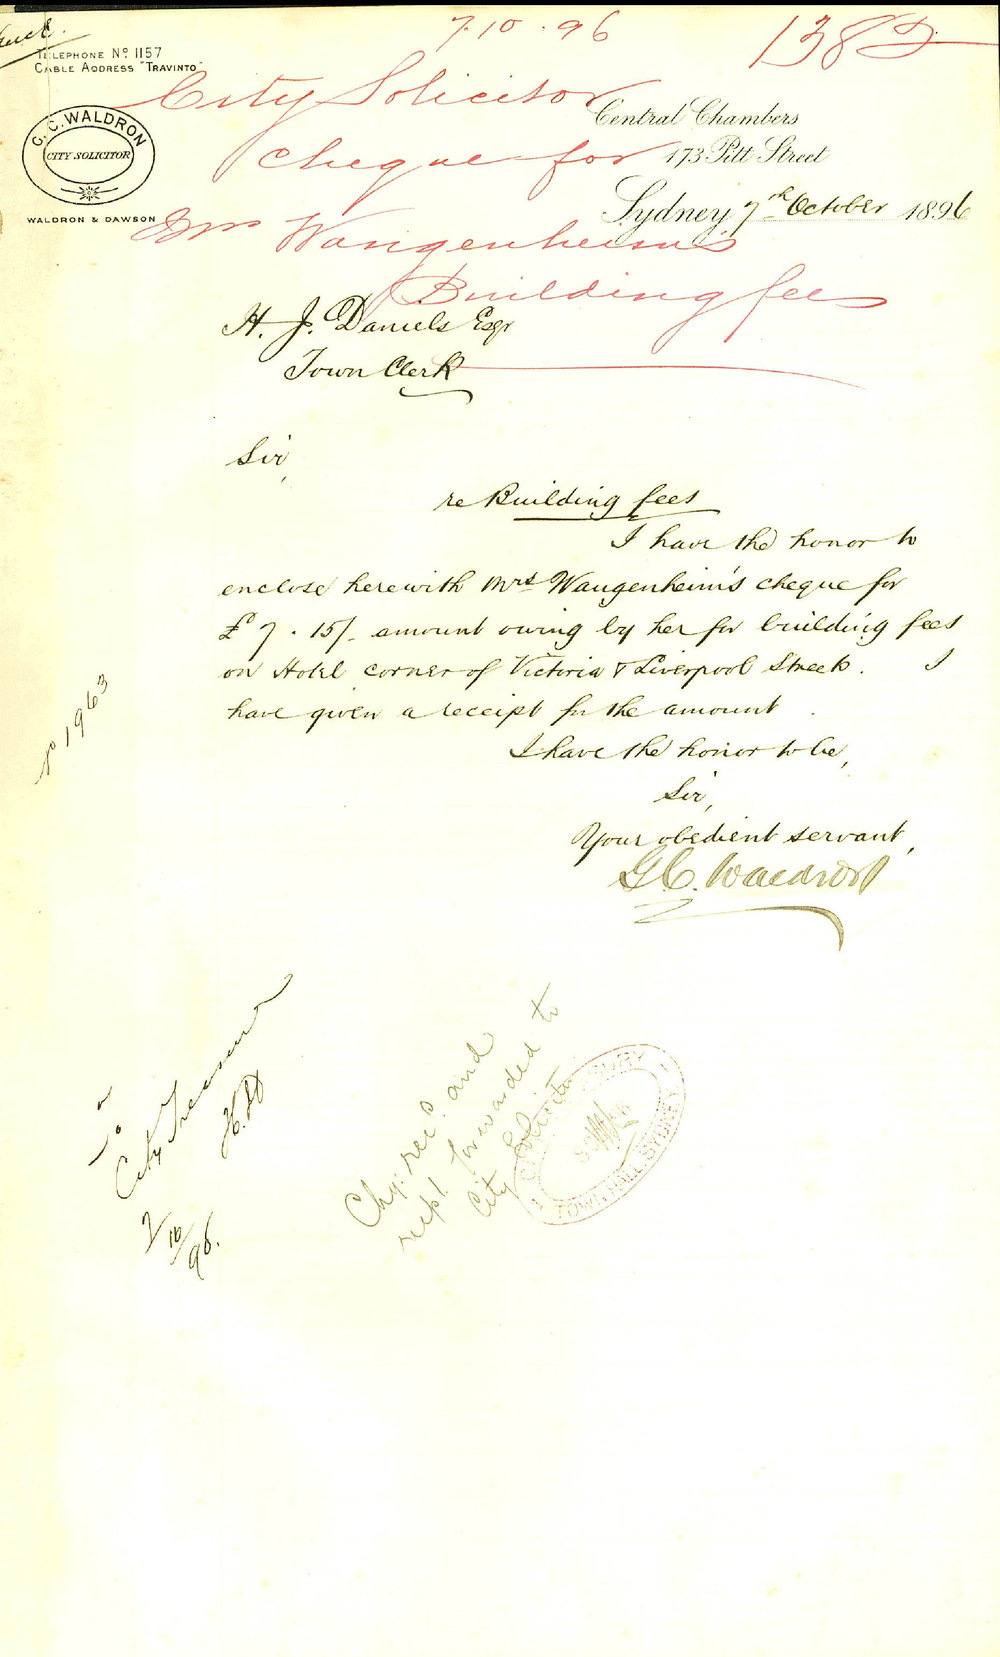 7.10.96
1382
TELEPHONE No 1157
CABLE ADDRESS "TRAVINTO"
City Solicitor
Central Chambers
G.C. WALDRON
CITY SOLICITOR
cheque for
173 Pitt Street
WALDRON & DAWSON
Sydney 7th October 1896
Mrs Wangenheim's
Building fees
H. J. Daniels Esqr
Town Clerk
Sir,
re Building fees
I have the honor to
enclose herewith Mrs Wangenheim's cheque for
£7.15/- amount owing by her for building fees
on Hotel corner of Victoria & Liverpool Streets. I
have given a receipt for the amount.
I have the honor to be,
Sir,
Your obedient servant,
G.C. Waldron
1963
City Treasurer
H.D
7/10/96.
Chq. recd. and
recpt. forwarded to
City Solicitor
TOWN HALL SYDNEY